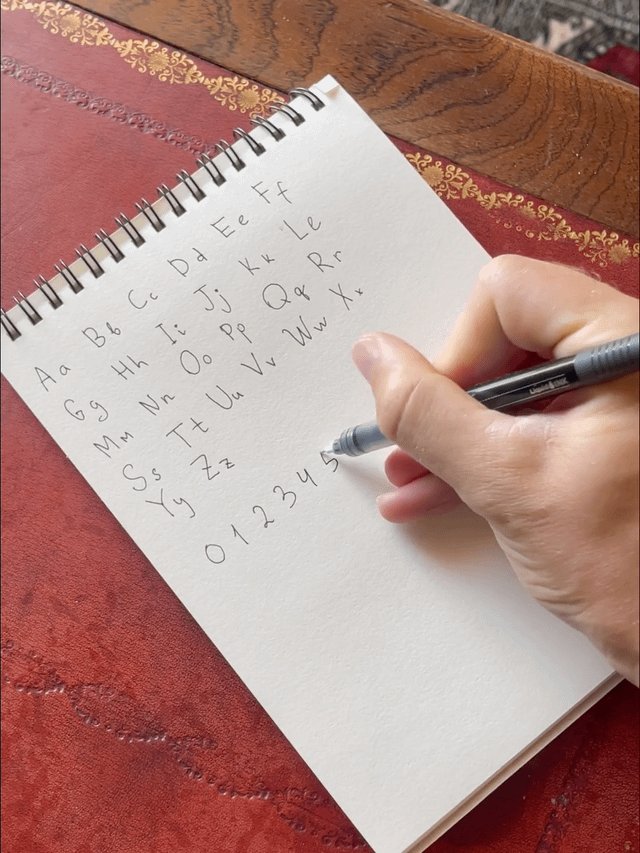 Aa Bb Cc Dd Ee Ff
Gg Hh Ii Jj Kk Ll
Mm Nn Oo Pp Qq Rr
Ss Tt Uu Vv Ww Xx
Yy Zz
0 1 2 3 4 5